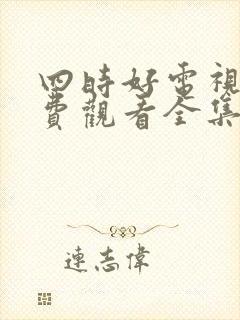 四時好電視
費觀看全集
連志偉